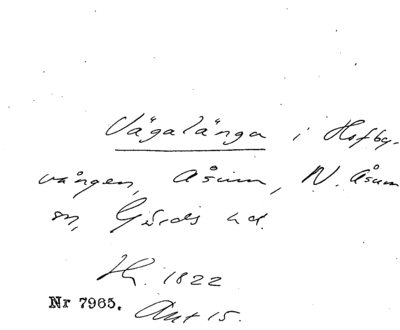 Vägalänga i Hofby-
vången, Åsum, N. Åsum
sn, Gärds hd.
Hr. 1822
Nr 7965. Akt 15.